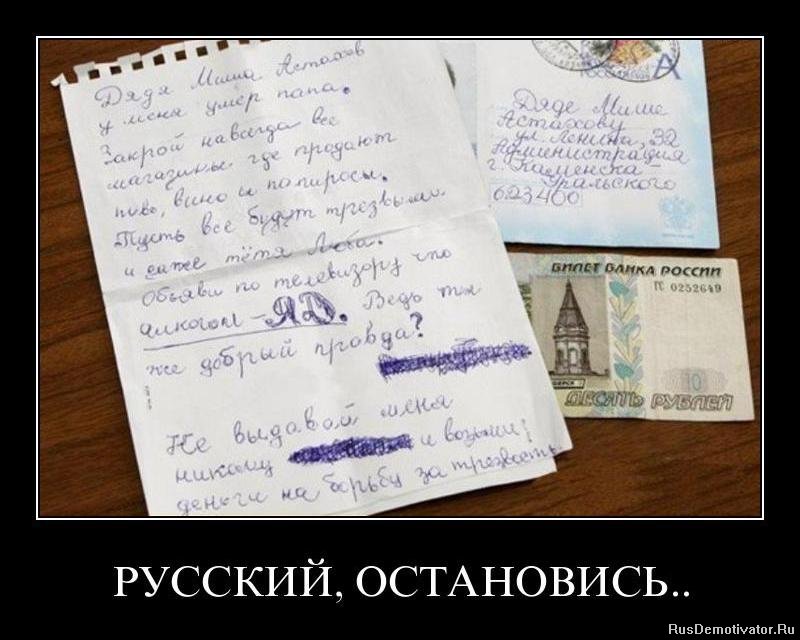 Дядя Миша Астахов
у меня умер папа.
Закрой навсегда все
магазины где продают
пиво, вино и папиросы.
Пусть все будут трезвыми
и даже тётя Люба.
Объяви по телевизору что
алкоголь - ЯД. Ведь ты
же добрый правда?
Не выдавай меня
никому и возьми
деньги на борьбу за трезвость
А
Дяде Мише
Астахову
ул. Ленина, 32
Администрация
г. Каменска-
Уральского
623400
БИЛЕТ БАНКА РОССИИ
0252649
10
ДЕСЯТЬ РУБЛЕЙ
РУССКИЙ, ОСТАНОВИСЬ..
RusDemotivator.Ru